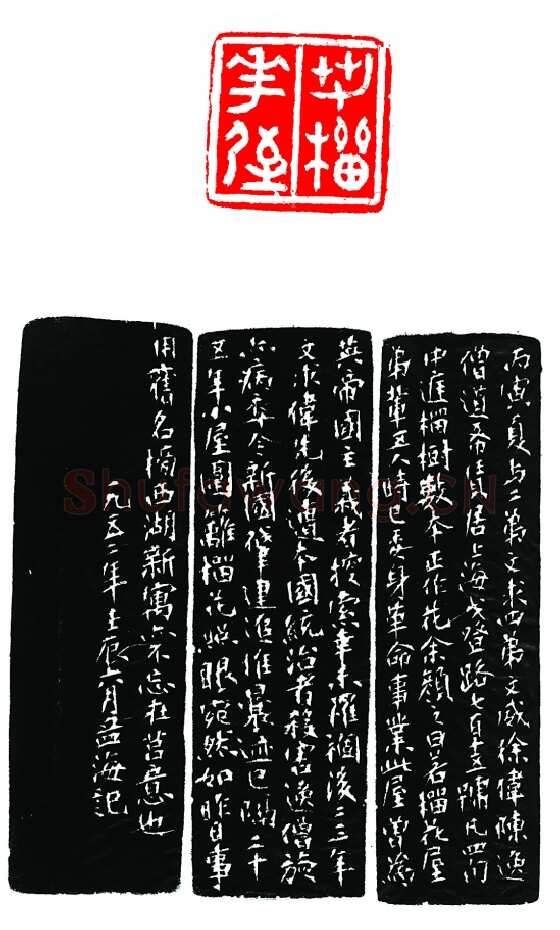 若榴
花屋
丙寅夏与二弟文求四弟文威徐偉陳逸
僧道希同居上海戈登路七百十五號凡四間
中庭榴樹數本正作花余顏之曰若榴花屋
弟輩五人時已委身革命事業此屋曾為
英帝國主義者搜索幸未罹禍後二三年
文求偉先後遭本國統治者殺害逸僧旋
亦病卒今新國肇建追惟曩迹已隔二十
五年小屋團圞榴花照眼宛然如昨日事
用舊名榜西湖新寓亦不忘在莒意也
一九五二年壬辰六月孟海記
Shufawang.CN